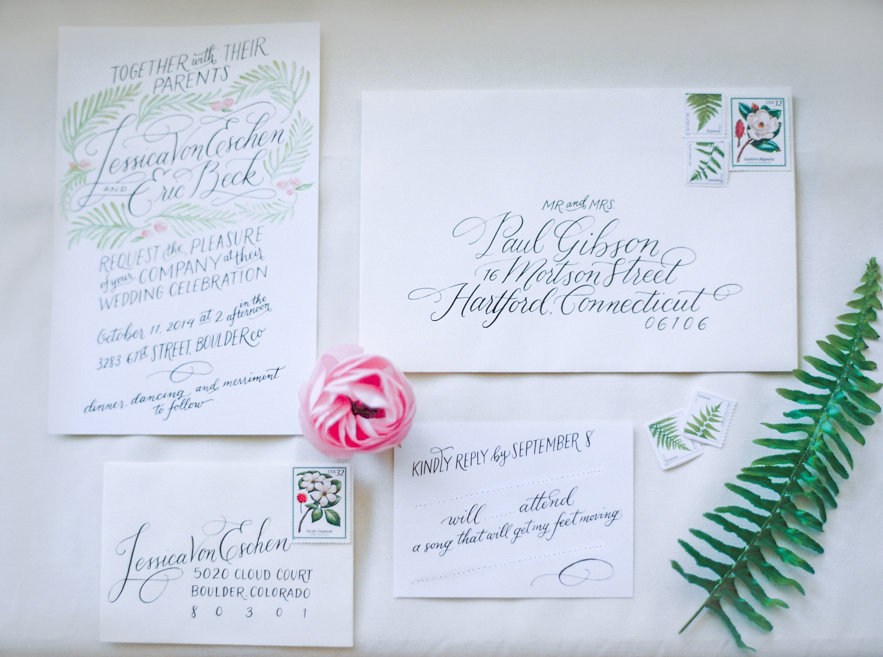 TOGETHER with THEIR
PARENTS
Jessica Von Eschen
AND Eric Beck
REQUEST the PLEASURE
of your COMPANY at their
WEDDING CELEBRATION
October 11, 2014 at 2 in the
afternoon
3283 61st STREET, BOULDER CO
dinner dancing and merriment
to follow
MR and MRS
Paul Gibson
16 Mortson Street
Hartford, Connecticut
06106
USA 32
Southern Magnolia
KINDLY REPLY by SEPTEMBER 8
will attend
a song that will get my feet moving
USA 32
Jessica Von Eschen
5020 CLOUD COURT
BOULDER, COLORADO
80301